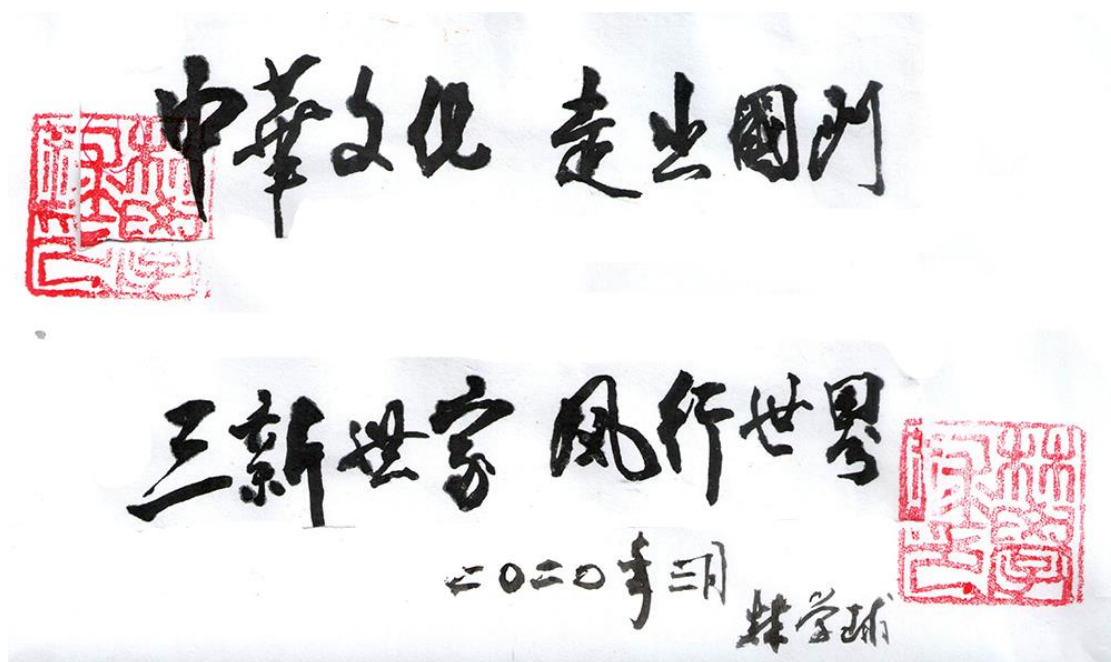 中華文化 走出國門
三新世家 風行世界
二〇二〇年三月
林学球